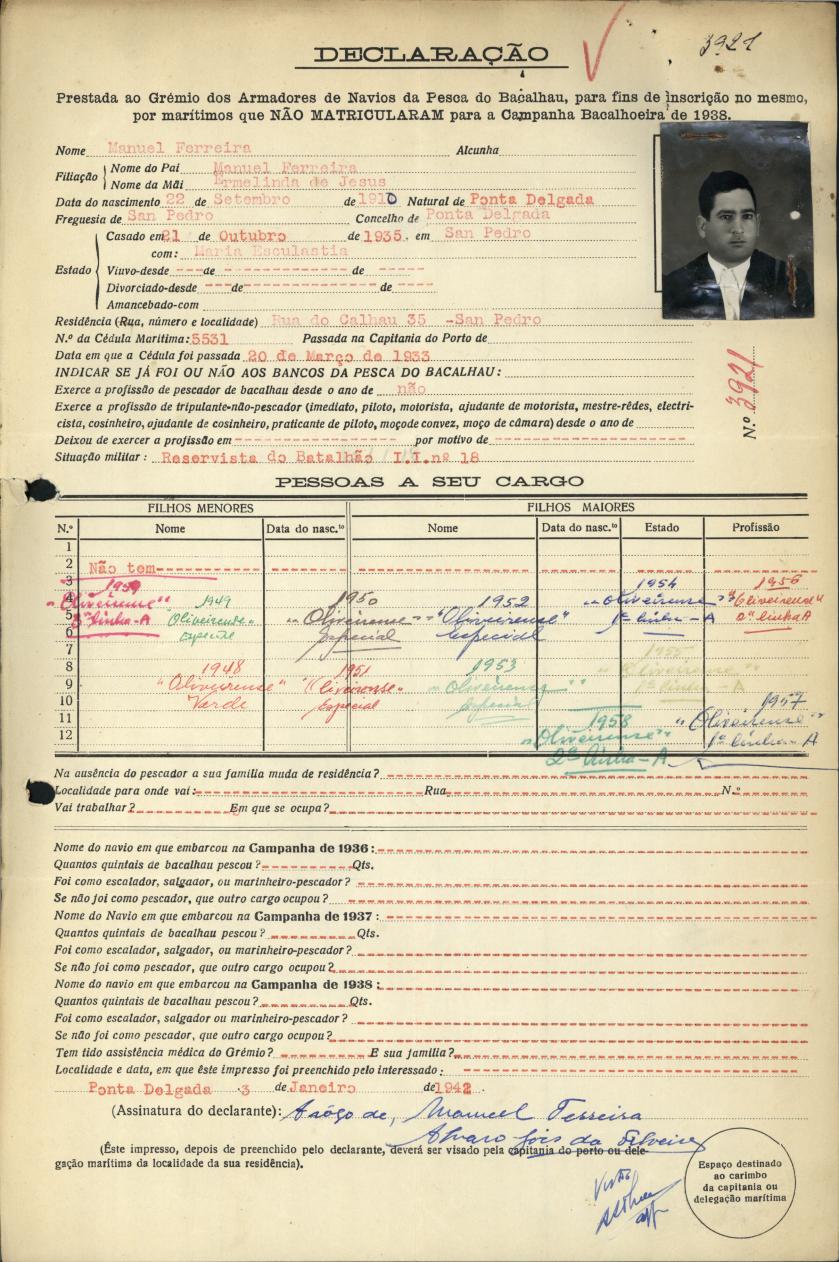 3921
DECLARAÇÃO
Prestada ao Grémio dos Armadores de Navios da Pesca do Bacalhau, para fins de inscrição no mesmo,
por marítimos que NÃO MATRICULARAM para a Campanha Bacalhoeira de 1938.
Nome Manuel Ferreira Alcunha
Filiação Nome do Pai Manuel Ferreira
Nome da Mãi Ermelinda de Jesus
Data do nascimento 22 de Setembro de 1910 Natural de Ponta Delgada
Freguesia de San Pedro Concelho de Ponta Delgada
Casado em 21 de Outubro de 1935. em San Pedro
com: Maria Esculastia
Estado Viuvo-desde ---de ------------ de -----
Divorciado-desde ---de ------------ de ----
Amancebado-com
Residência (Rua, número e localidade) Rua do Calhau 35 -San Pedro
N.º da Cédula Marítima: 5531 Passada na Capitania do Porto de
Data em que a Cédula foi passada 20 de Março de 1933
Nº 3921
INDICAR SE JÁ FOI OU NÃO AOS BANCOS DA PESCA DO BACALHAU:
Exerce a profissão de pescador de bacalhau desde o ano de não
Exerce a profissão de tripulante-não-pescador (imediato, piloto, motorista, ajudante de motorista, mestre-rêdes, electri-
cista, cosinheiro, ajudante de cosinheiro, praticante de piloto, moço de convez, moço de câmara) desde o ano de
Deixou de exercer a profissão em ---------------- por motivo de -------------------
Situação militar: Reservista do Batalhão I.I.nº 18
PESSOAS A SEU CARGO
FILHOS MENORES FILHOS MAIORES
N.º Nome Data do nasc.to Nome Data do nasc.to Estado Profissão
1
2 Não tem
3 1959 1954 1956
4 "Oliveirense" 1949 1950 1952 "Oliveirense" "Oliveirense"
5 3ª linha-A "Oliveirense" "Oliveirense" "Oliveirense" 1ª linha-A 2ª linha A
6 especial Especial especial
7 1955
8 1948 1951 1953 "Oliveirense"
9 "Oliveirense" "Oliveirense" "Oliveirense" 1ª linha-A
10 Verde Especial especial 1957
11 1958 "Oliveirense"
12 "Oliveirense" 1ª linha-A
2ª linha-A
Na ausência do pescador a sua família muda de residência?
Localidade para onde vai: Rua N.º
Vai trabalhar? Em que se ocupa?
Nome do navio em que embarcou na Campanha de 1936:
Quantos quintais de bacalhau pescou? Qts.
Foi como escalador, salgador, ou marinheiro-pescador?
Se não foi como pescador, que outro cargo ocupou?
Nome do Navio em que embarcou na Campanha de 1937:
Quantos quintais de bacalhau pescou? Qts.
Foi como escalador, salgador, ou marinheiro-pescador?
Se não foi como pescador, que outro cargo ocupou?
Nome do navio em que embarcou na Campanha de 1938:
Quantos quintais de bacalhau pescou? Qts.
Foi como escalador, salgador ou marinheiro-pescador?
Se não foi como pescador, que outro cargo ocupou?
Tem tido assistência médica do Grémio? E sua família?
Localidade e data, em que êste impresso foi preenchido pelo interessado:
Ponta Delgada 3 de Janeiro de 1942.
(Assinatura do declarante): A rôgo de, Manuel Ferreira
Alvaro José da Silveira
(Êste impresso, depois de preenchido pelo declarante, deverá ser visado pela capitania do porto ou dele-
gação marítima da localidade da sua residência).
Visto
Espaço destinado
ao carimbo
da capitania ou
delegação marítima